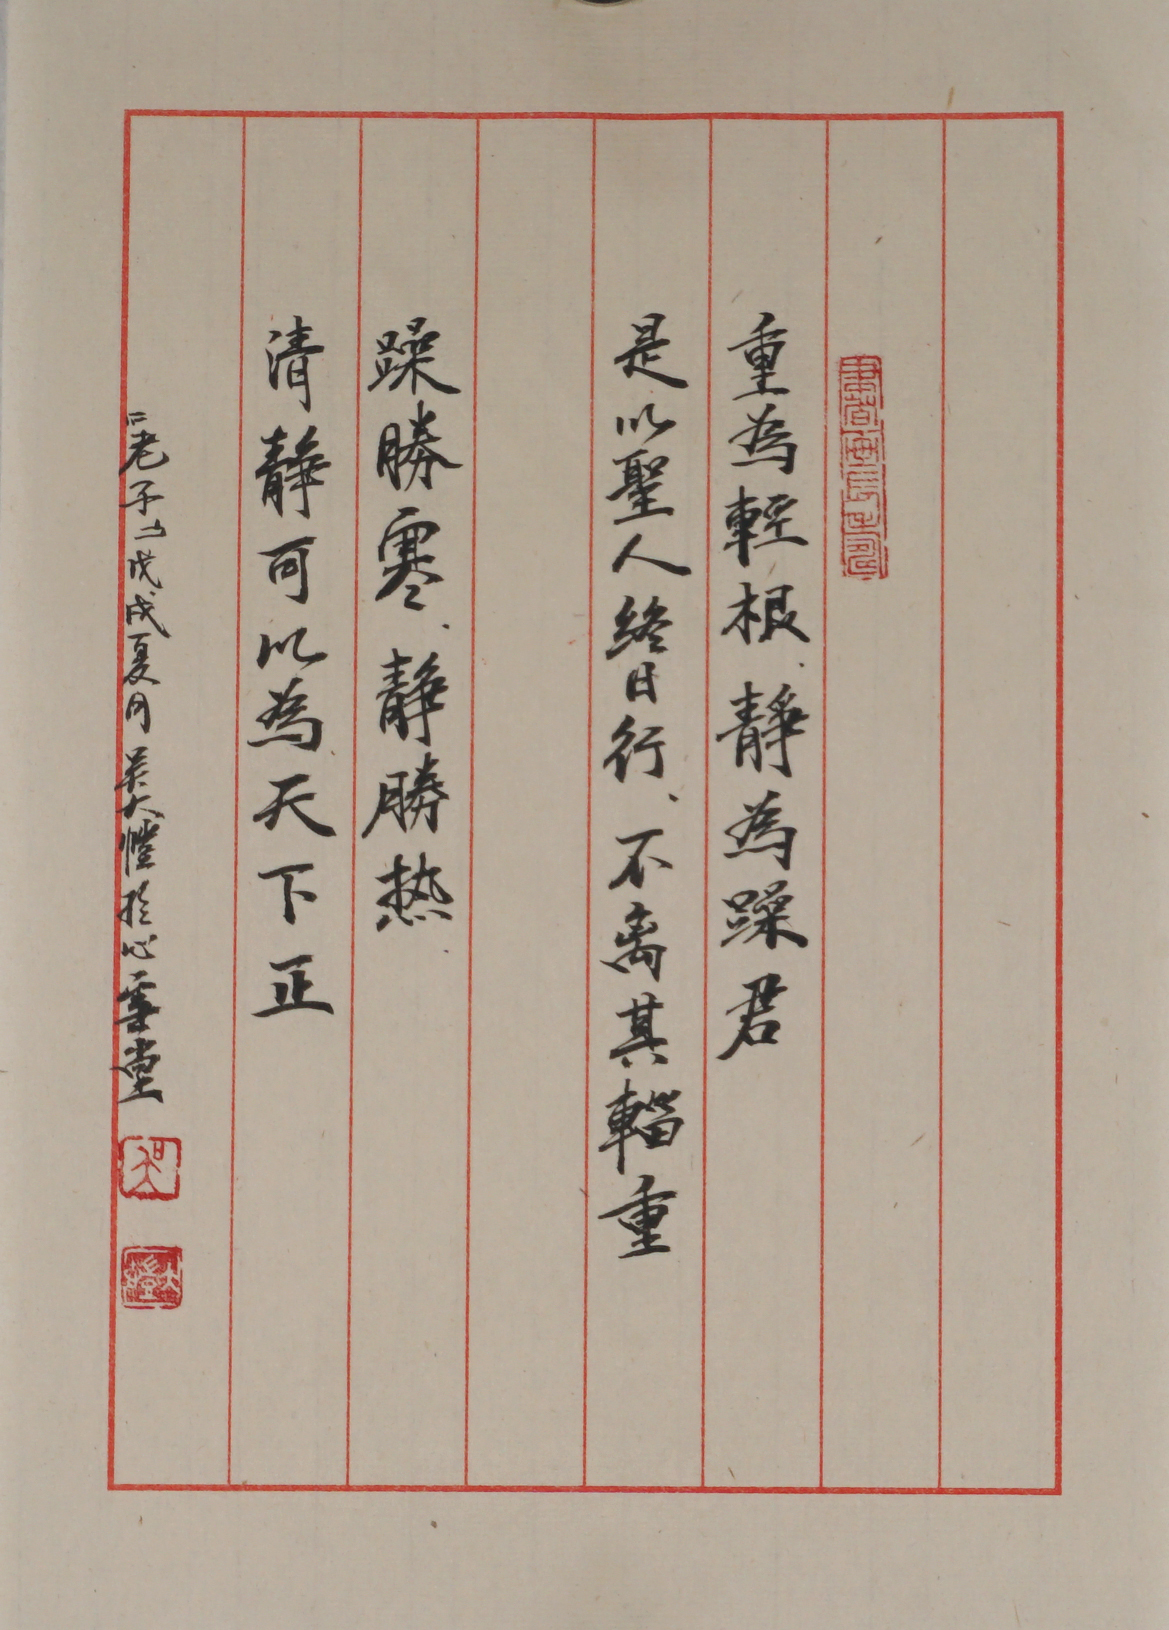 重為輕根、靜為躁君
是以聖人終日行、不离其輜重
躁勝寒、靜勝热
清靜可以為天下正
「老子」戊戌夏月 吴大愷於心雲堂